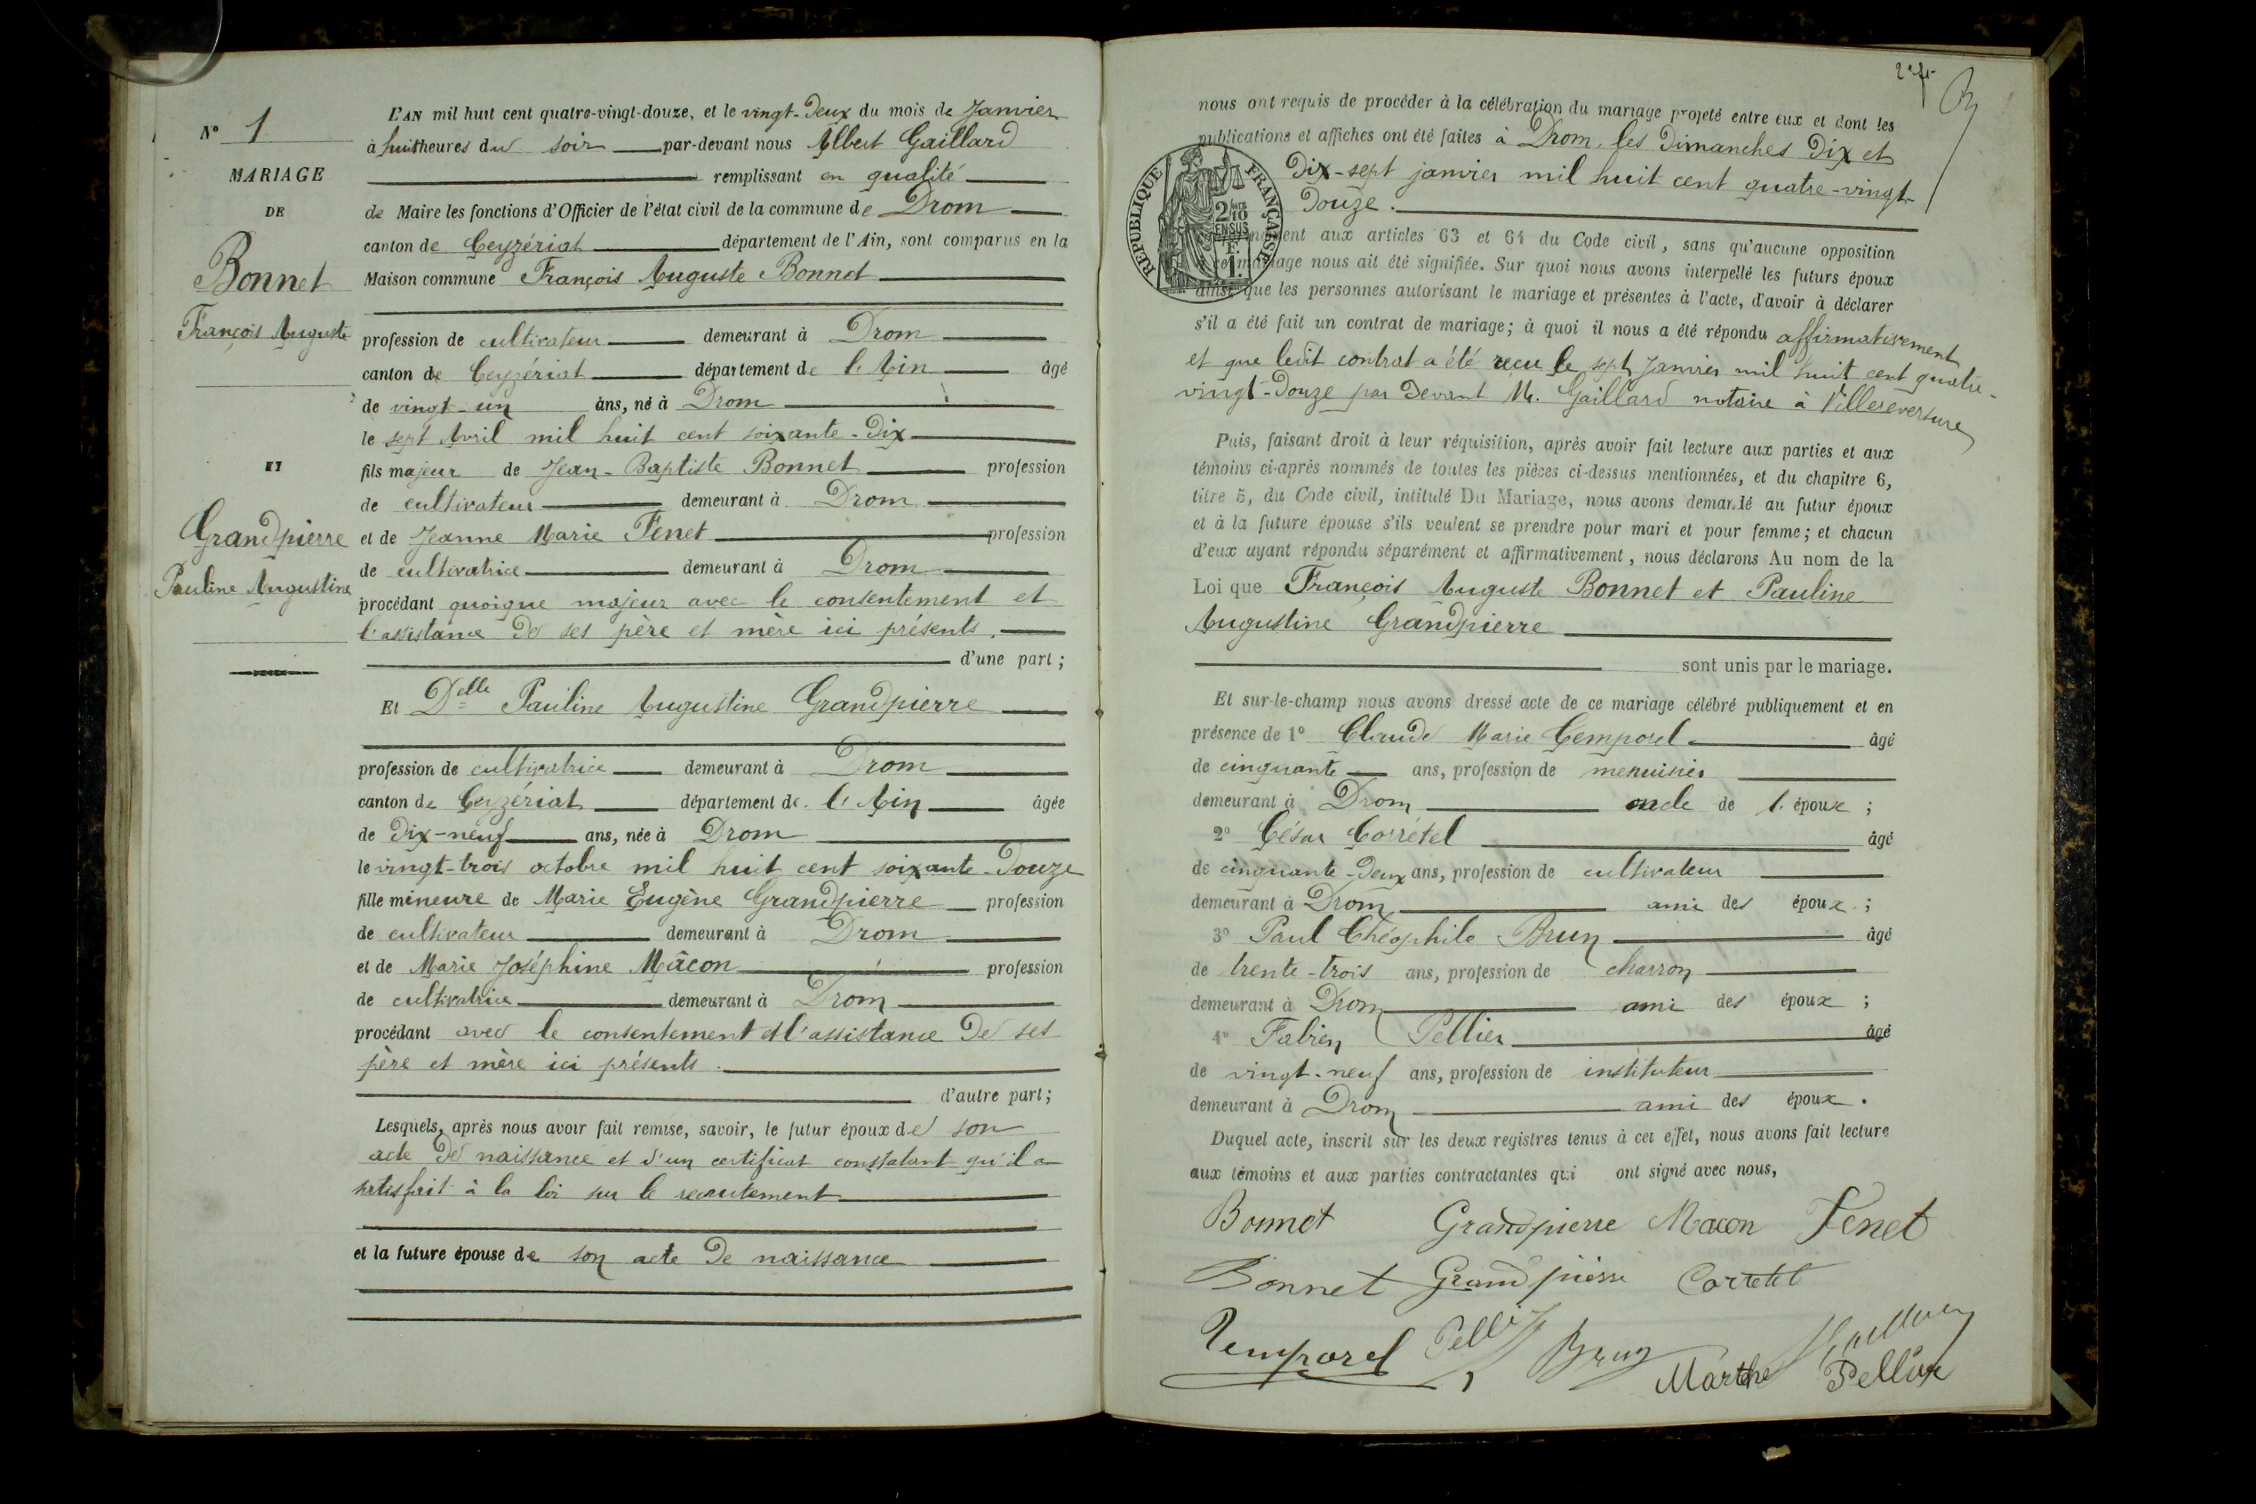 N° 1
MARIAGE
DE
Bonnet
François Auguste
ET
Grandpierre
Pauline Augustine
L'AN mil huit cent quatre-vingt-douze, et le vingt-deux du mois de Janvier
à huit heures du soir par-devant nous Albert Gaillard
remplissant en qualité
de Maire les fonctions d'Officier de l'état civil de la commune de Drom
canton de Ceyzériat département de l'Ain, sont comparus en la
Maison commune François Auguste Bonnet
profession de cultivateur demeurant à Drom
canton de Ceyzériat département de l'Ain âgé
de vingt-un ans, né à Drom
le sept Avril mil huit cent soixante-dix
fils majeur de Jean-Baptiste Bonnet profession
de cultivateur demeurant à Drom
et de Jeanne Marie Fenet profession
de cultivatrice demeurant à Drom
procédant quoique majeur avec le consentement et
l'assistance de ses père et mère ici présents.
d'une part;
Et Delle Pauline Augustine Grandpierre
profession de cultivatrice demeurant à Drom
canton de Ceyzériat département de l'Ain âgée
de dix-neuf ans, née à Drom
le vingt-trois octobre mil huit cent soixante-douze
fille mineure de Marie Eugène Grandpierre profession
de cultivateur demeurant à Drom
et de Marie Joséphine Mâcon profession
de cultivatrice demeurant à Drom
procédant avec le consentement et l'assistance de ses
père et mère ici présents.
d'autre part;
Lesquels, après nous avoir fait remise, savoir, le futur époux de son
acte de naissance et d'un certificat constatant qu'il a
satisfait à la loi sur le recrutement
et la future épouse de son acte de naissance
nous ont requis de procéder à la célébration du mariage projeté entre eux et dont les
publications et affiches ont été faites à Drom, les dimanches dix et
dix-sept janvier mil huit cent quatre-vingt-
douze.
RÉPUBLIQUE FRANÇAISE
2/10 EN SUS
F. 1.
aux articles 63 et 64 du Code civil, sans qu'aucune opposition
ce mariage nous ait été signifiée. Sur quoi nous avons interpellé les futurs époux
ainsi que les personnes autorisant le mariage et présentes à l'acte, d'avoir à déclarer
s'il a été fait un contrat de mariage; à quoi il nous a été répondu affirmativement
et que ledit contrat a été reçu le sept Janvier mil huit cent quatre-
vingt-douze par devant M. Gaillard notaire à Villereversure
Puis, faisant droit à leur réquisition, après avoir fait lecture aux parties et aux
témoins ci-après nommés de toutes les pièces ci-dessus mentionnées, et du chapitre 6,
titre 5, du Code civil, intitulé Du Mariage, nous avons demandé au futur époux
et à la future épouse s'ils veulent se prendre pour mari et pour femme; et chacun
d'eux ayant répondu séparément et affirmativement, nous déclarons Au nom de la
Loi que François Auguste Bonnet et Pauline
Augustine Grandpierre
sont unis par le mariage.
Et sur-le-champ nous avons dressé acte de ce mariage célébré publiquement et en
présence de 1° Claude Marie Temporel âgé
de cinquante ans, profession de menuisier
demeurant à Drom oncle de l'époux;
2° César Corrétel âgé
de cinquante-deux ans, profession de cultivateur
demeurant à Drom ami des époux;
3° Paul Théophile Brun âgé
de trente-trois ans, profession de charron
demeurant à Drom ami des époux;
4° Fabien Pellier âgé
de vingt-neuf ans, profession de instituteur
demeurant à Drom ami des époux.
Duquel acte, inscrit sur les deux registres tenus à cet effet, nous avons fait lecture
aux témoins et aux parties contractantes qui ont signé avec nous,
Bonnet Grandpierre Macon Fenet
Bonnet Grandpierre Corretel
Temporel Pellier Brun
Marthe Pellier